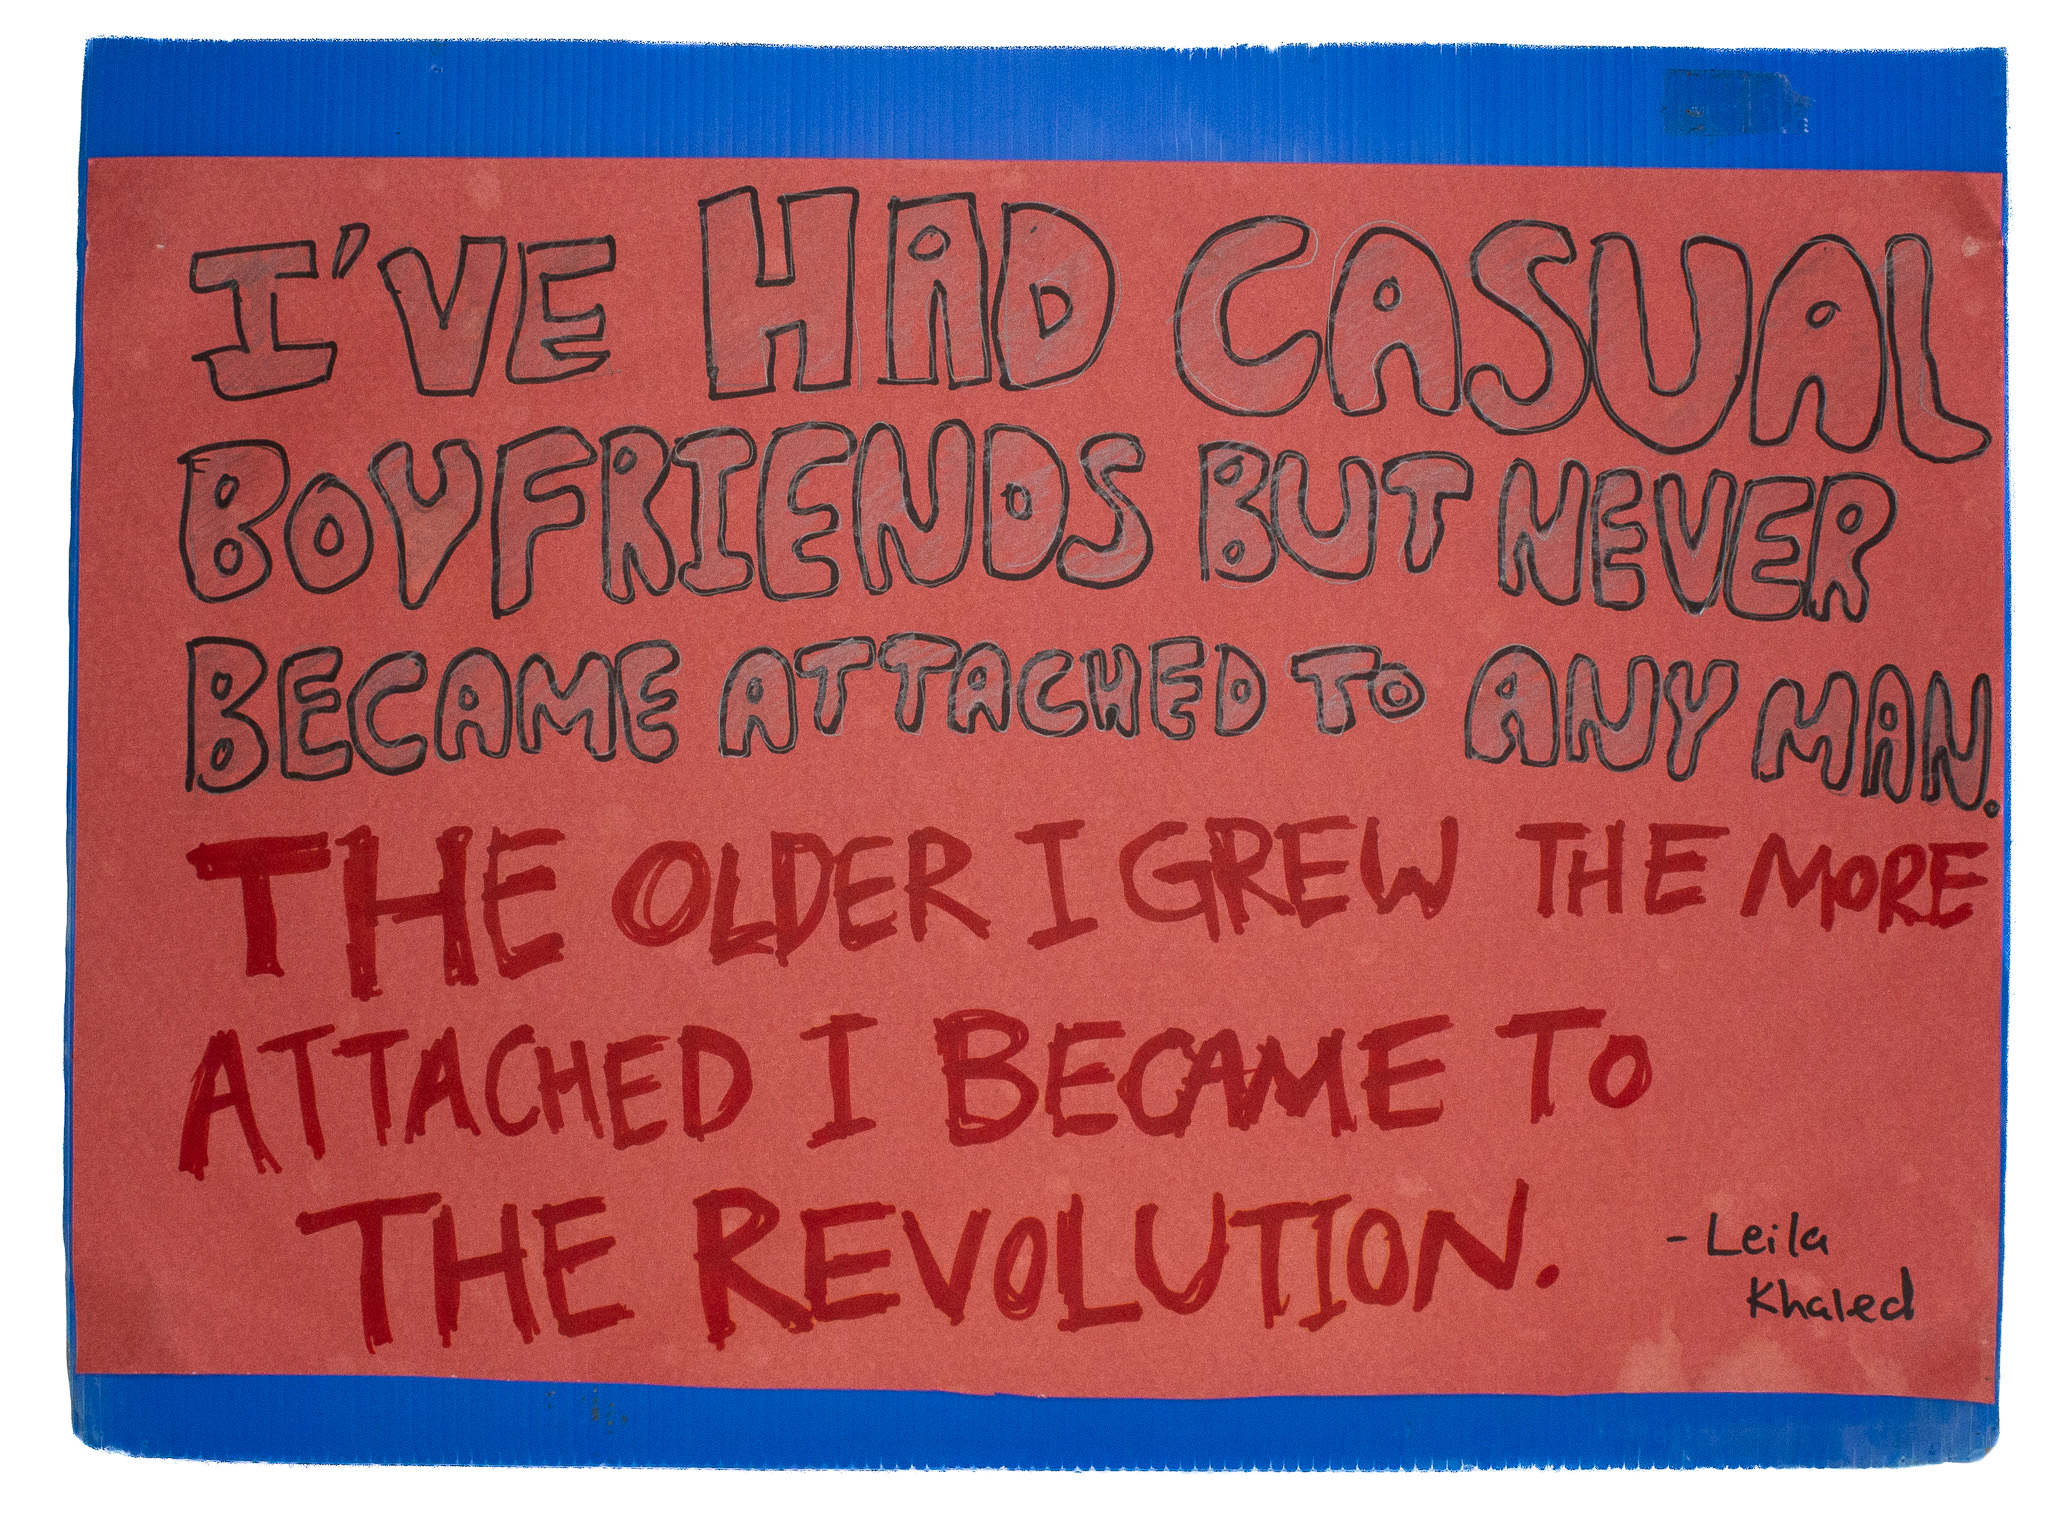 I'VE HAD CASUAL
BOYFRIENDS BUT NEVER
BECAME ATTACHED TO ANY MAN.
THE OLDER I GREW THE MORE
ATTACHED I BECAME TO
THE REVOLUTION.
- Leila
Khaled